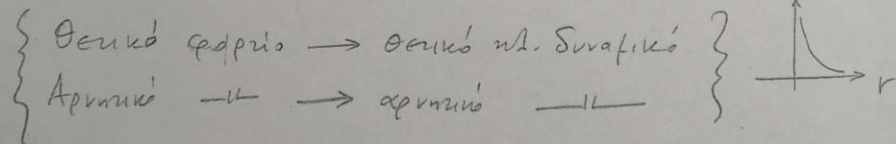 Θετικό φορτίο → θετικό ηλ. δυναμικό
Αρνητικό —〃— → αρνητικό —〃—
r